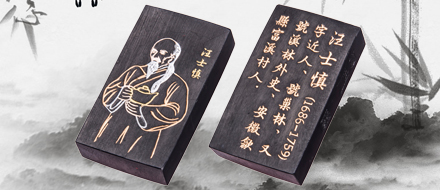 汪士慎
汪士慎(1686-1759)
字近人、
號溪林外史、號巢林、又
縣富溪村人．安徽歙